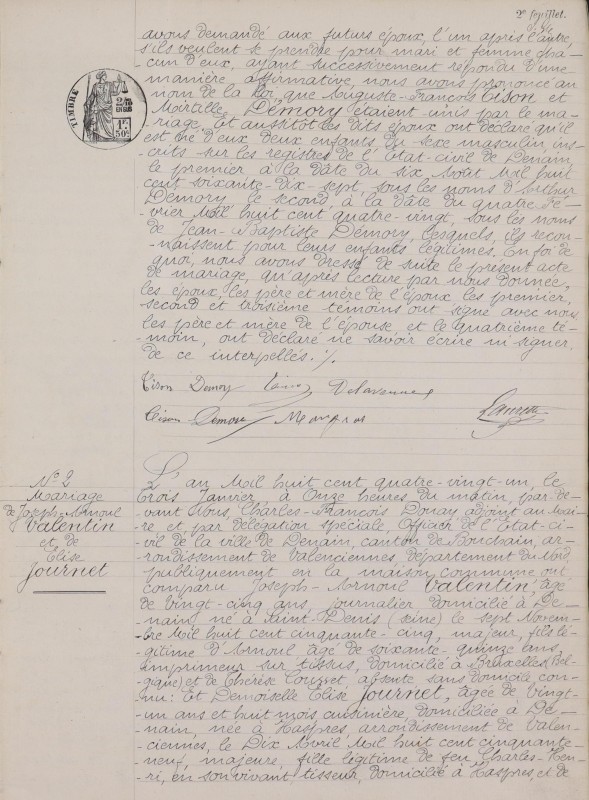 2e feuillet.
avons demandé aux futurs époux, l'un après l'autre,
s'ils veulent se prendre pour mari et femme, cha-
cun d'eux, ayant successivement répondu d'une
manière, affirmative, nous avons prononcé au
nom de la Loi, que Auguste-François Cison et
Mirtille Demory étaient unis par le ma-
riage. Et aussitôt les dits époux ont déclaré qu'il
est né d'eux deux enfants du sexe masculin, ins-
crits sur les registres de l'Etat-civil de Denain,
le premier à la date du six Août Mil huit
cent soixante-dix-sept, sous les noms d'Arthur
Demory, le second, à la date du quatre Fé-
vrier Mil huit cent quatre-vingt, sous les noms
de Jean-Baptiste Demory, lesquels, ils recon-
naissent pour leurs enfants légitimes. En foi de
quoi, nous avons dressé de suite le présent acte
de mariage, qu'après lecture par nous donnée,
les époux, les père et mère de l'époux, les premier,
second et troisième témoins ont signé avec nous,
les père et mère de l'épouse, et le quatrième té-
moin, ont déclaré ne savoir écrire ni signer,
de ce interpellés. ./.
TIMBRE
1F
50c
Cison Demory Delavenne
Cison Demory
N° 2
Mariage
de Joseph-Arnoul
Valentin
et de
Elise
Journet
L'an Mil huit cent quatre-vingt-un, le
Trois Janvier, à Onze heures du matin, par-de-
vant Nous, Charles-François Donay adjoint au Mai-
re et, par délégation spéciale Officier de l'Etat-ci-
vil de la ville de Denain, canton de Bouchain, ar-
rondissement de Valenciennes, département du Nord,
publiquement en la maison commune ont
comparu Joseph-Arnoul Valentin âgé
de vingt-cinq ans, journalier, domicilié à De-
nain, né à Saint-Denis (seine) le sept Novem-
bre Mil huit cent cinquante-cinq, majeur, fils lé-
gitime d'Arnoul âgé de soixante-quinze ans,
imprimeur sur tissus, domicilié à Bruxelles, (Bel-
gique) et de Thérèse Couzret, absente sans domicile con-
nu: Et Demoiselle Elise Journet, âgée de vingt-
un ans et huit mois cuisinière, domiciliée à De-
nain, née à Haspres, arrondissement de Valen-
ciennes, le Dix Avril Mil huit cent cinquante-
neuf, majeure, fille légitime de feu Charles-Hen-
ri, en son vivant tisseur, domicilié à Haspres, et de